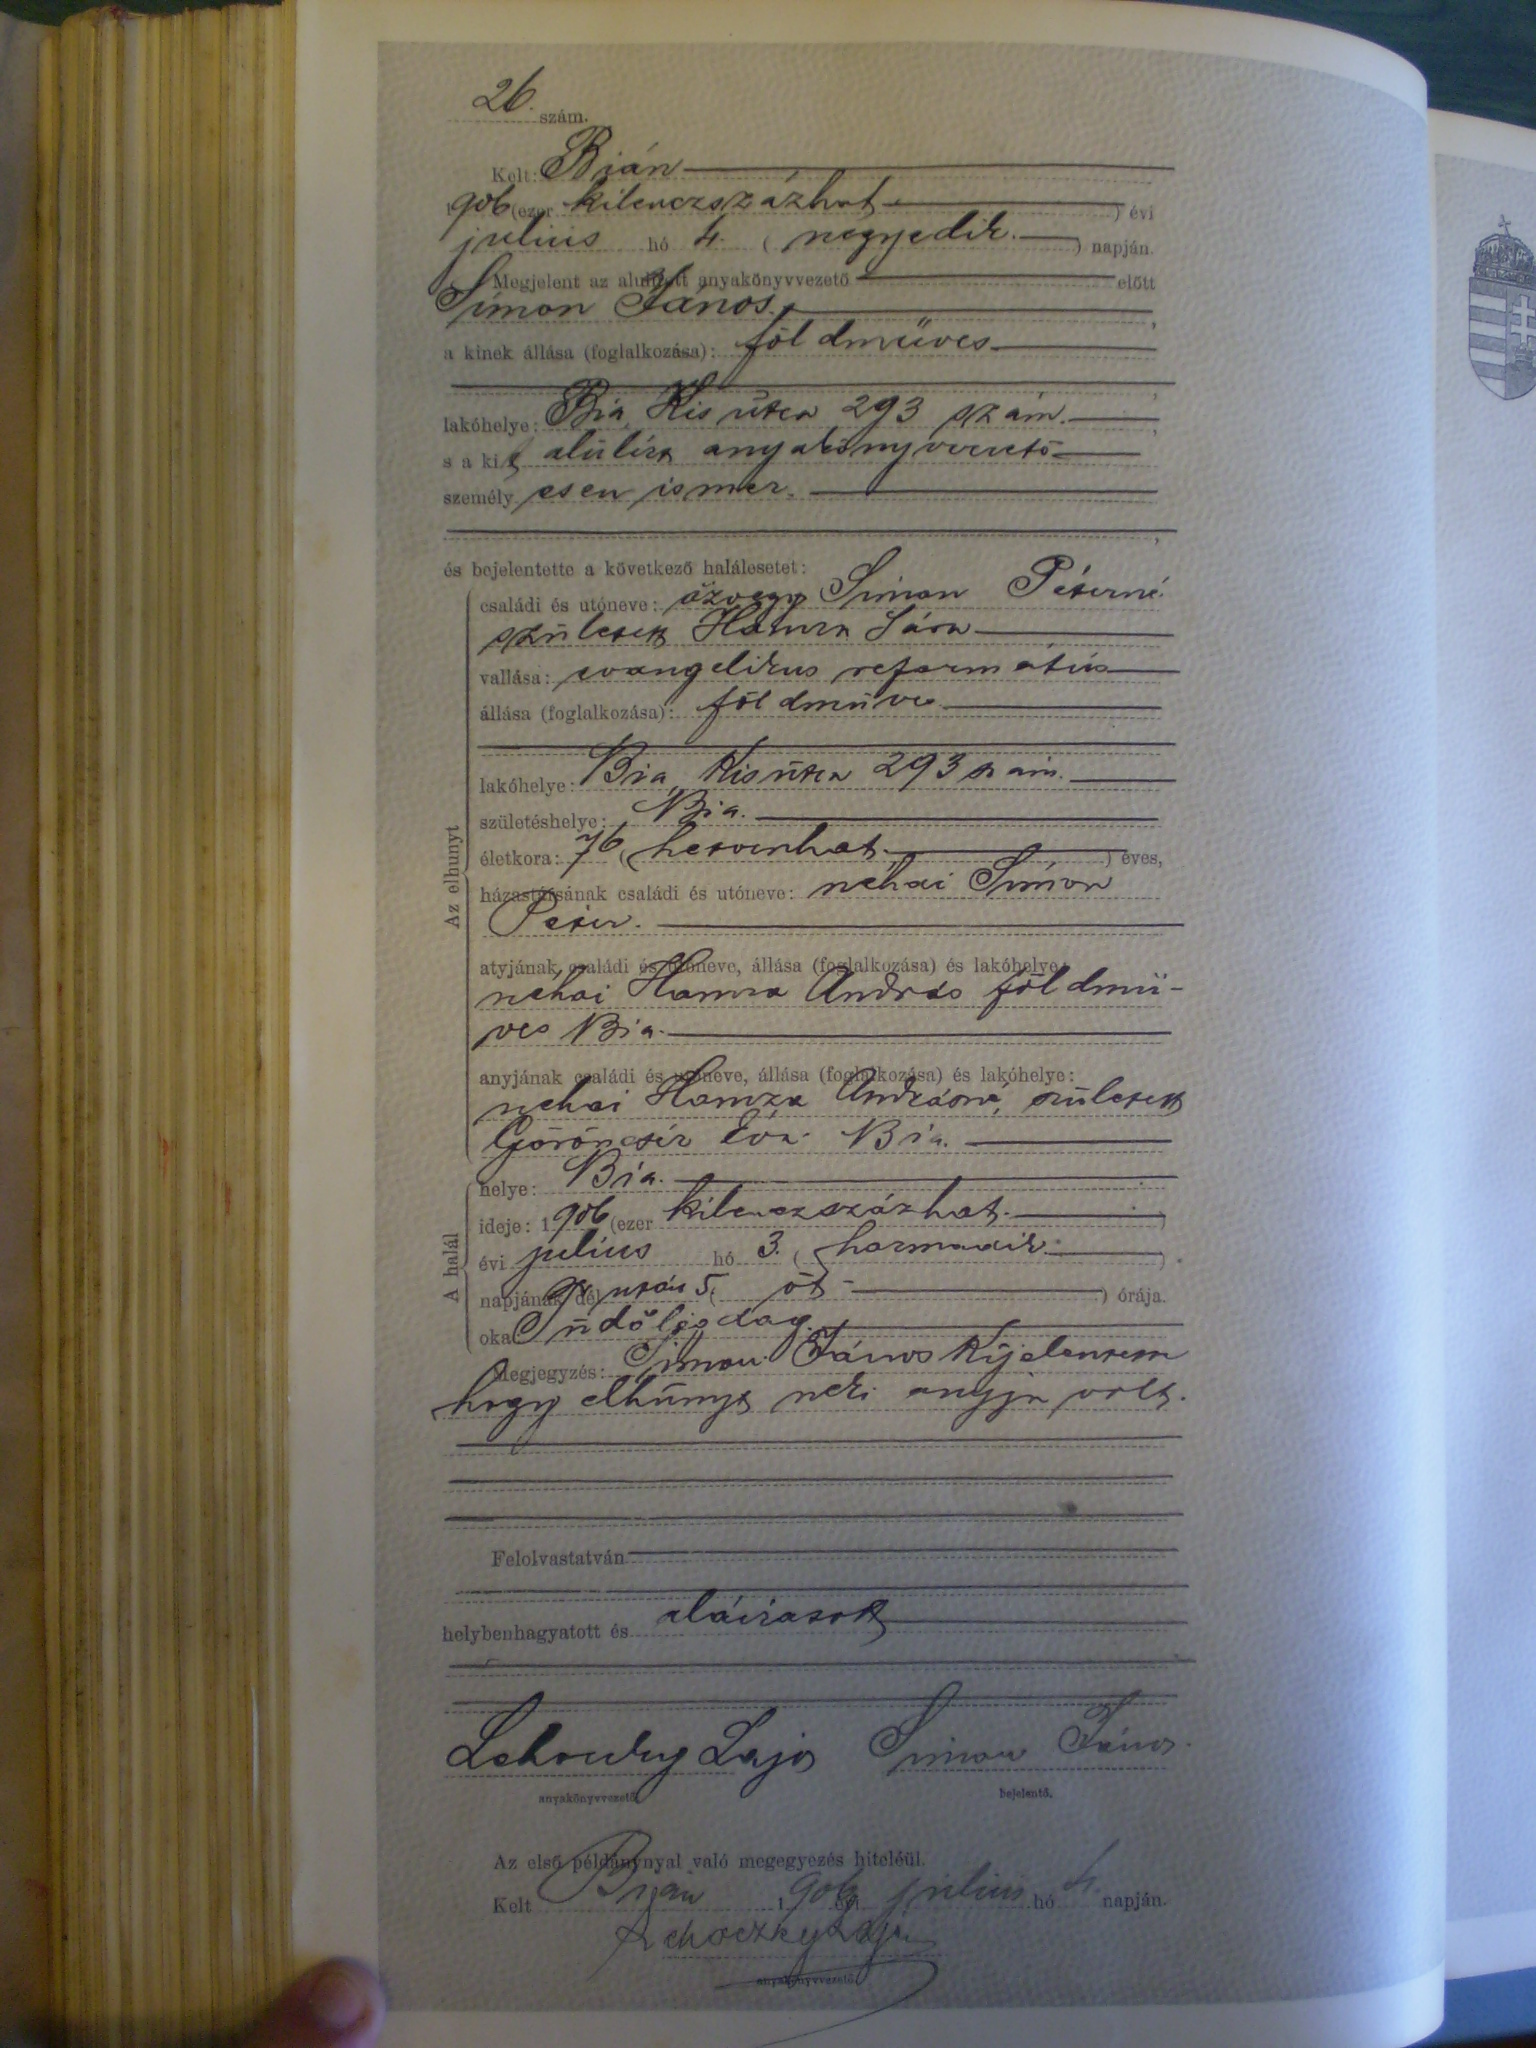 26. szám.
Kelt: Bián
1906 (ezer kilenczszázhat ) évi
julius hó 4. ( negyedik. ) napján.
Megjelent az alulírott anyakönyvvezető előtt
Simon János,
a kinek állása (foglalkozása): földmüves
lakóhelye: Bia, Kis útcza 293 szám.
s a kit alúlírt anyakönyvvezető
személy esen ismer.
és bejelentette a következő halálesetet:
Az elhunyt
családi és utóneve: özvegy Simon Péterné
született Hamza Sára
vallása: evangelikus református
állása (foglalkozása): földmüves
lakóhelye: Bia, Kis útcza 293 szám.
születéshelye: Bia.
életkora: 76 ( hetvenhat. ) éves,
házastársának családi és utóneve: néhai Simon
Péter.
atyjának családi és utóneve, állása (foglalkozása) és lakóhelye:
néhai Hamza András földmü-
ves Bia.
anyjának családi és utóneve, állása (foglalkozása) és lakóhelye:
néhai Hamza Andrásné, született
Göröncsér Éva. Bia.
A halál
helye: Bia.
ideje: 1906 (ezer kilenczszázhat.
évi julius hó 3. ( harmadik. )
napjának dél után 5. ( öt ) órája.
oka: Tüdőlégdag.
Megjegyzés: Simon János kijelentette
hogy elhúnyt neki anyja volt.
Felolvastatván
helybenhagyatott és aláíratott
Lehoczky Lajos Simon János.
anyakönyvvezető. bejelentő.
Az első példánynyal való megegyezés hiteléül.
Kelt Bián 1906 évi julius hó 4. napján.
Lehoczky Lajos
anyakönyvvezető.